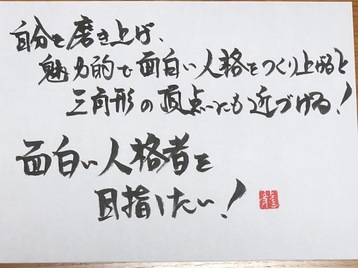 自分を磨き上げ、
魅力的で面白い人格をつくり上げると
三角形の頂点にも近づける!
面白い人格者を
目指したい!